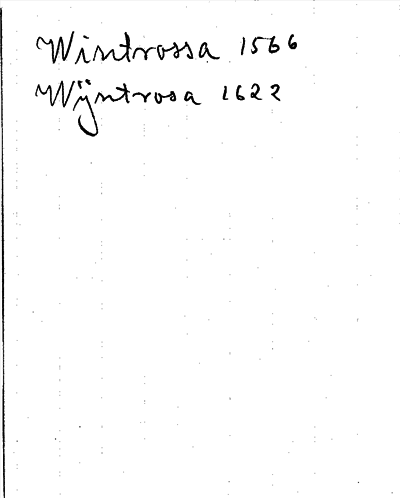 Wintrossa 1566
Wÿntrosa 1622